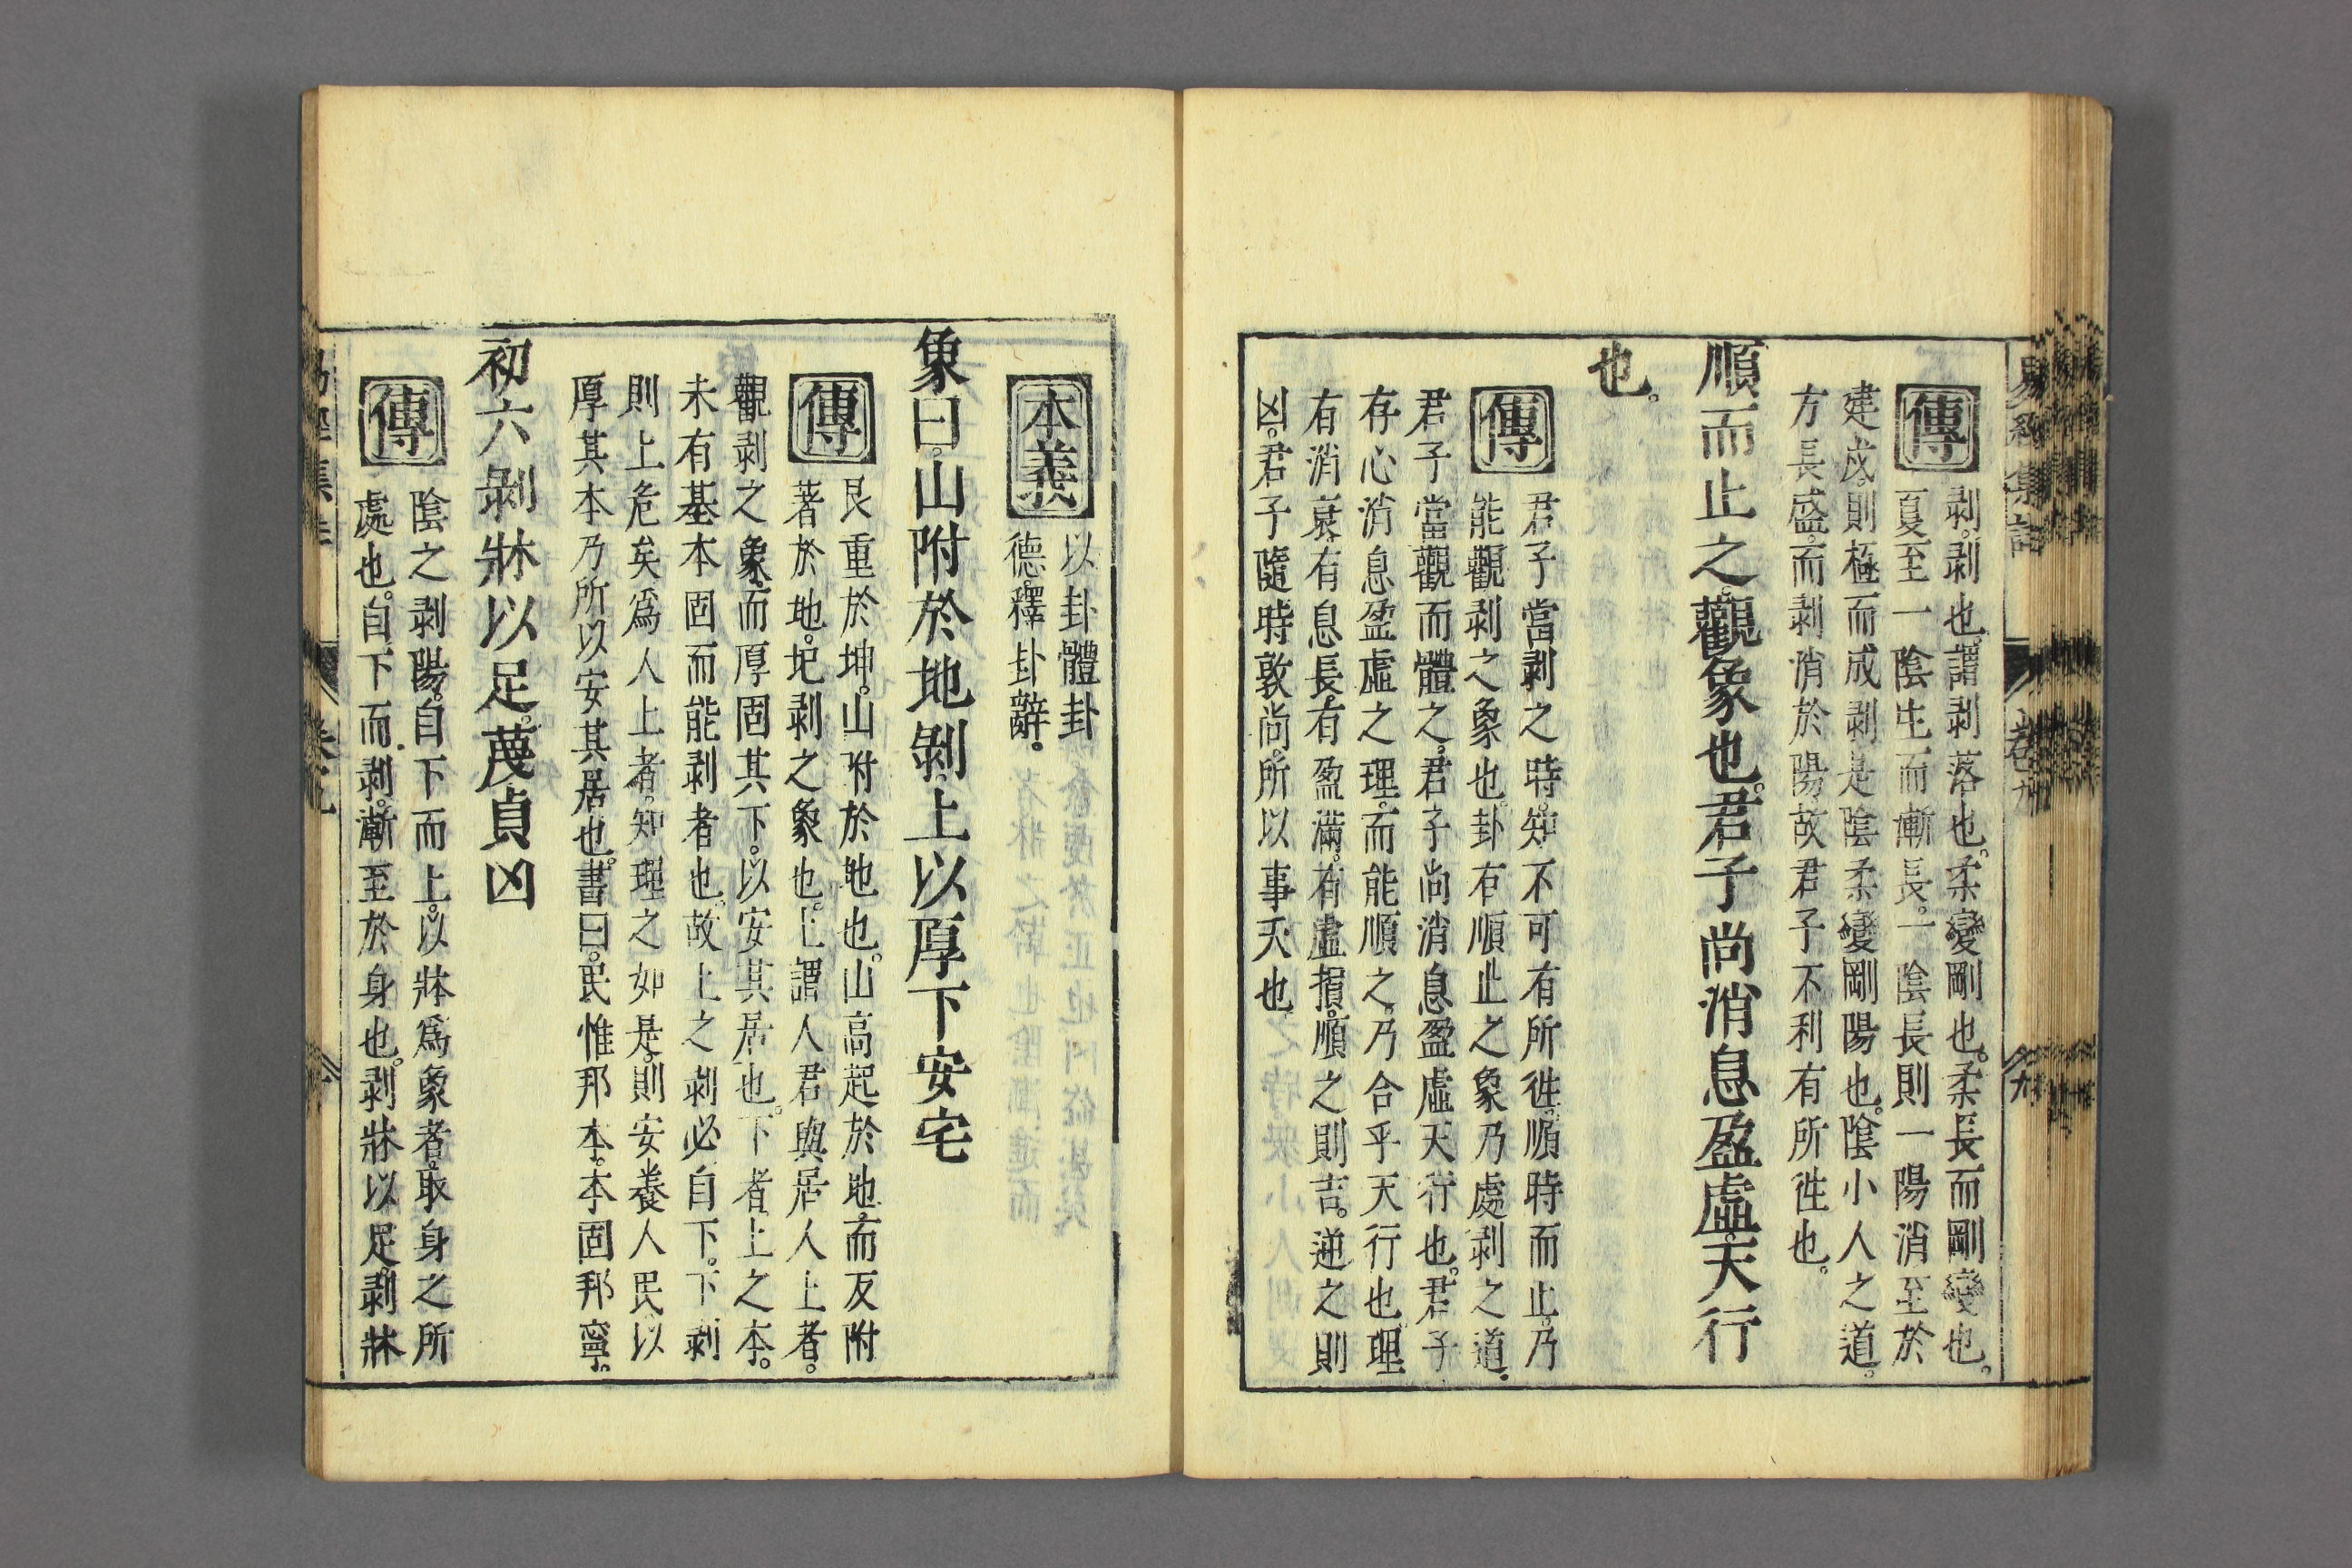 傳 剥。剥也。謂剥落也。柔變剛也。柔長而剛變也。
夏至一陰生而漸長。一陰長則一陽消至於
建戌。則極而成剥是陰柔變剛陽也。陰小人之道。
方長盛。而剥消於陽。故君子不利有所徃也。
順而止之。觀象也。君子尚消息盈虛。天行
也。
傳 君子當剥之時。知不可有所徃。順時而止。乃
能觀剥之象也。卦有順止之象乃處剥之道。
君子當觀而體之。君子尚消息盈虛天行也。君子
存心消息盈虛之理。而能順之。乃合乎天行也理
有消衰。有息長。有盈滿。有虛損。順之則吉。逆之則
凶。君子隨時敦尚。所以事天也
本義 以卦體卦
德。釋卦辭。
象曰。山附於地剝。上以厚下安宅
傳 艮重於坤。山附於地也。山高起於地。而反附
著於地。圯剥之象也。上謂人君與居人上者。
觀剥之象。而厚固其下。以安其居也。下者。上之本。
未有基本固而能剥者也。故上之剥必自下。下剥
則上危矣爲人上者。知理之如是。則安養人民以
厚其本乃所以安其居也。書曰。民惟邦本。本固邦寧。
初六剝牀以足。蔑貞凶
傳 陰之剥陽。自下而上。以牀爲象者。取身之所
處也。自下而剥。漸至於身也。剥牀以足。剥牀